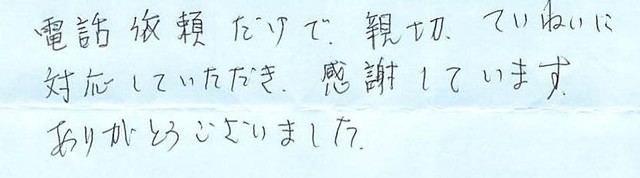 電話依頼だけで、親切、ていねいに
対応していただき、感謝しています。
ありがとうございました。